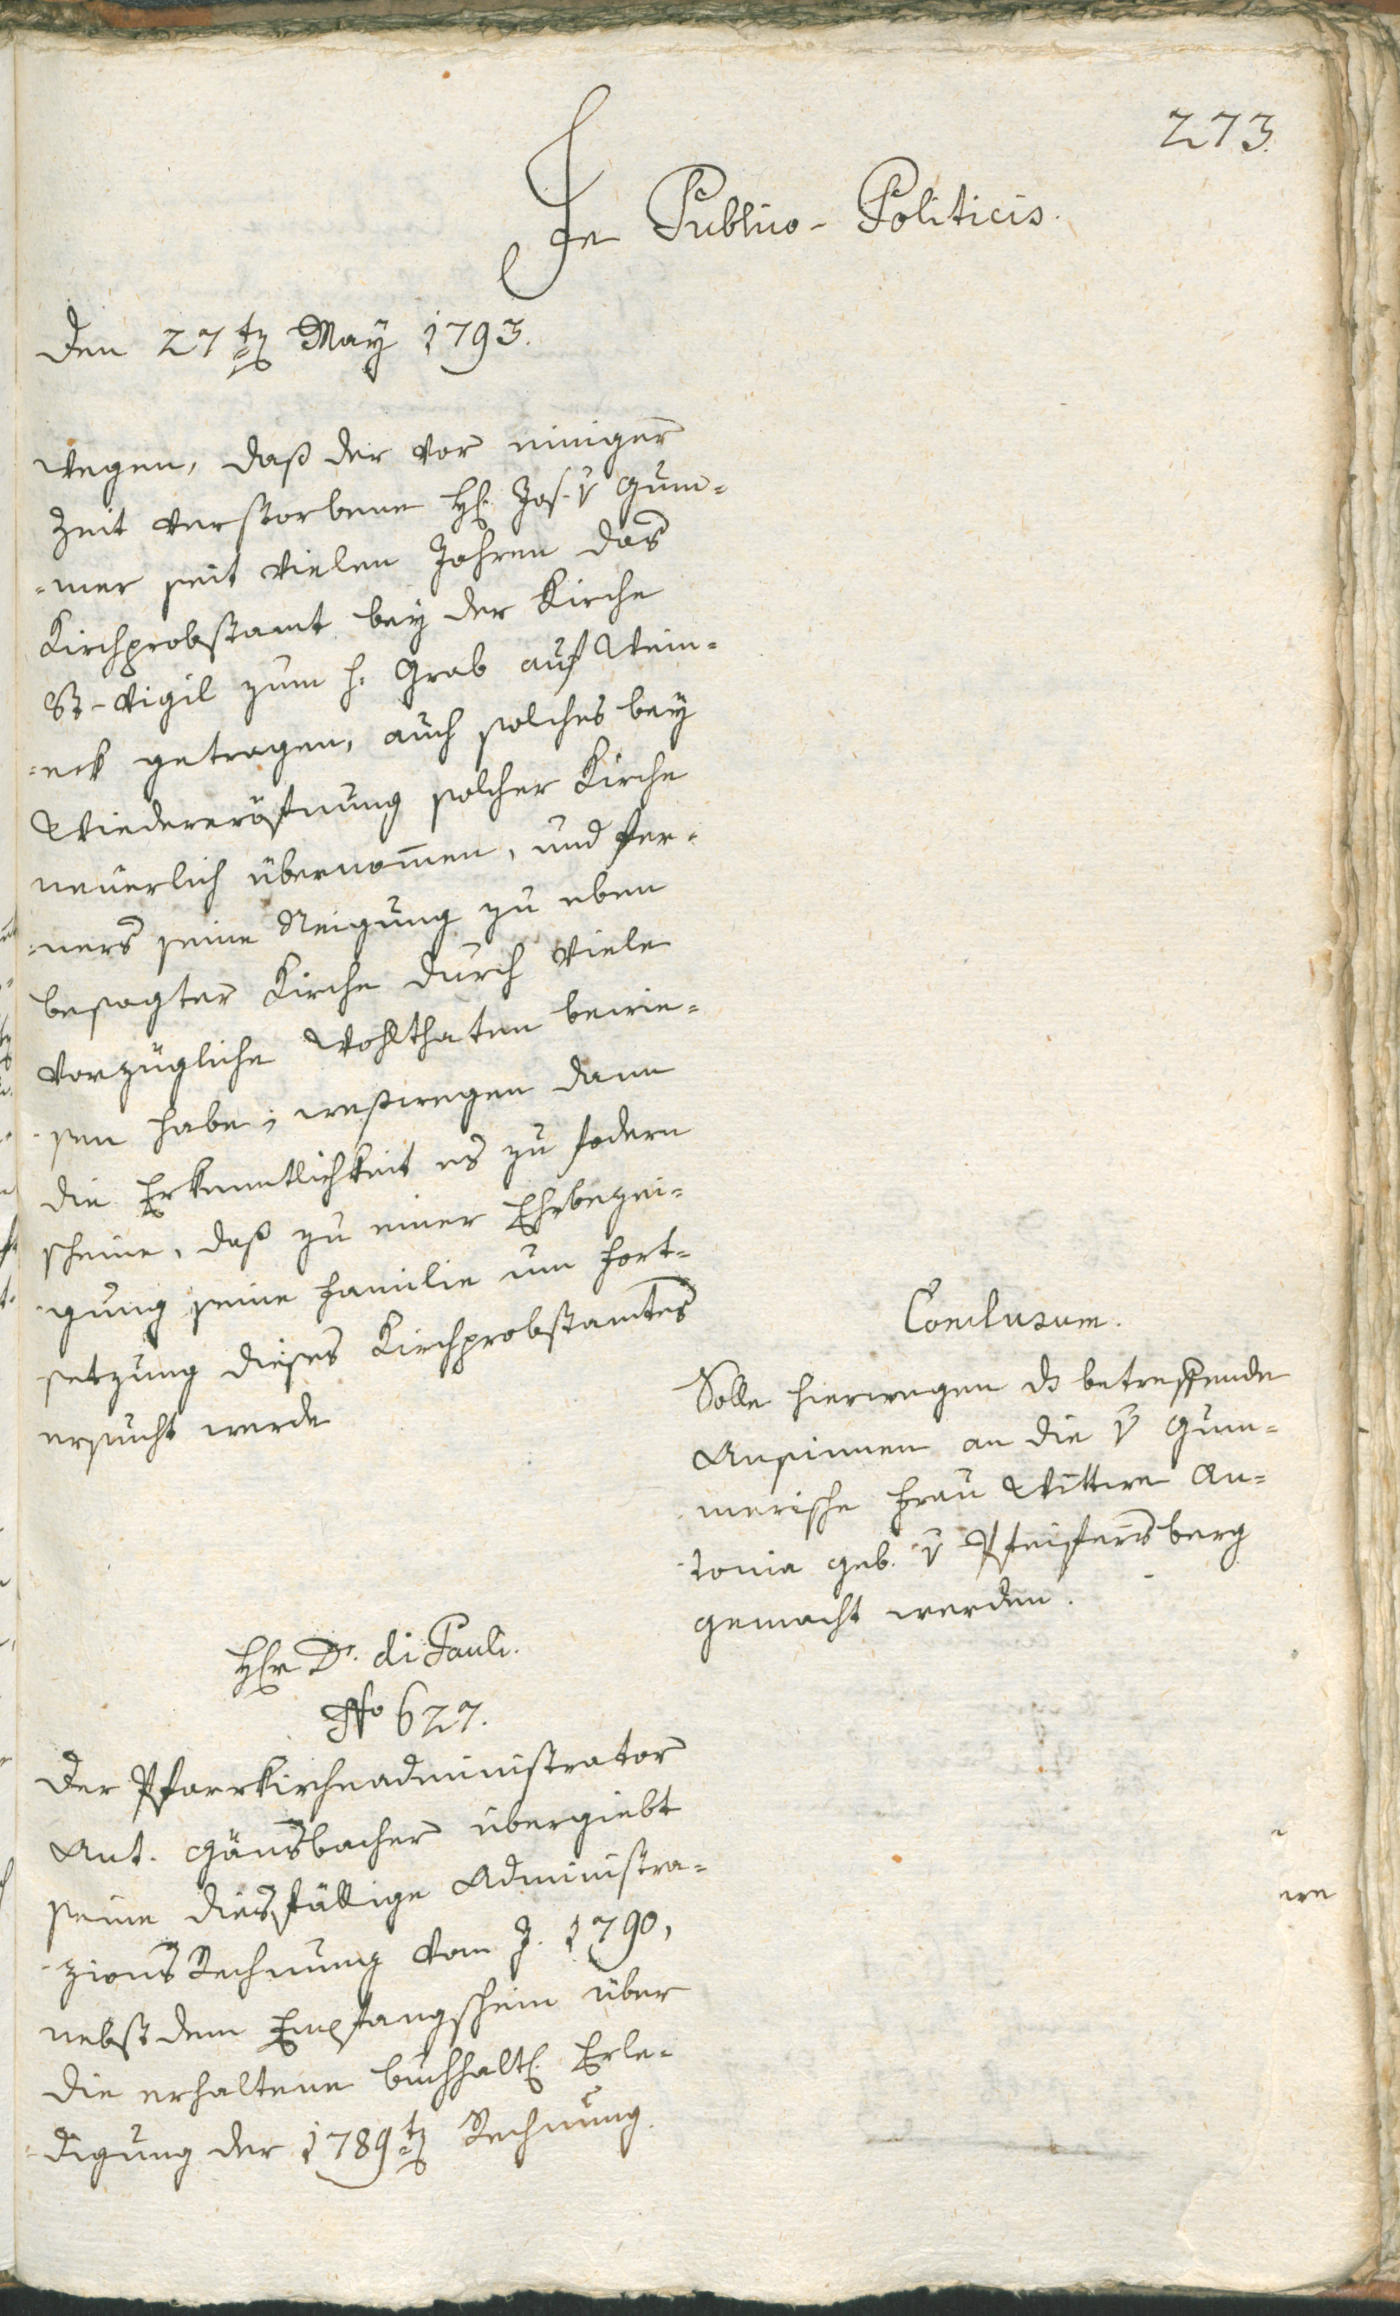 273.
In Publico-Politicis.
Den 27ten May 1793.
wegen, daß der vor einiger
Zeit verstorbene H. Jos. v Gum-
-mer seit vielen Jahren das
Kirchprobstamt bey der Kirche
St-Vigil zum h. Grab auf Wein-
-eck getragen, auch solches bey
Wiedereröfnung solcher Kirche
neuerlich übernom̄en, und fer-
-ners seine Neigung zu eben
besagter Kirche durch viele
vorzügliche Wohlthaten bewie-
-sen habe; weßwegen dann
die Erkenntlichkeit es zu fodern
scheine, daß zu einer Ehrbezei-
-gung seine Familie um Fort-
setzung dieses Kirchprobstamtes
ersucht werde
Conclusum.
Solle hierwegen ds betreffende
Ansinnen an die v Gum-
-merische Frau Wittwe An-
-tonia geb. v Pfeifersberg
gemacht werden.
Hr Dr. di Pauli.
No 627.
Der Pfarrkirchenadministrator
Ant. Gänsbacher übergiebt
seine diesfällige Administra-
-zions Rechnung vom J. 1790,
nebst dem Empfangschein über
die erhaltene buchhalt. Erle-
-digung der 1789ten Rechnung.